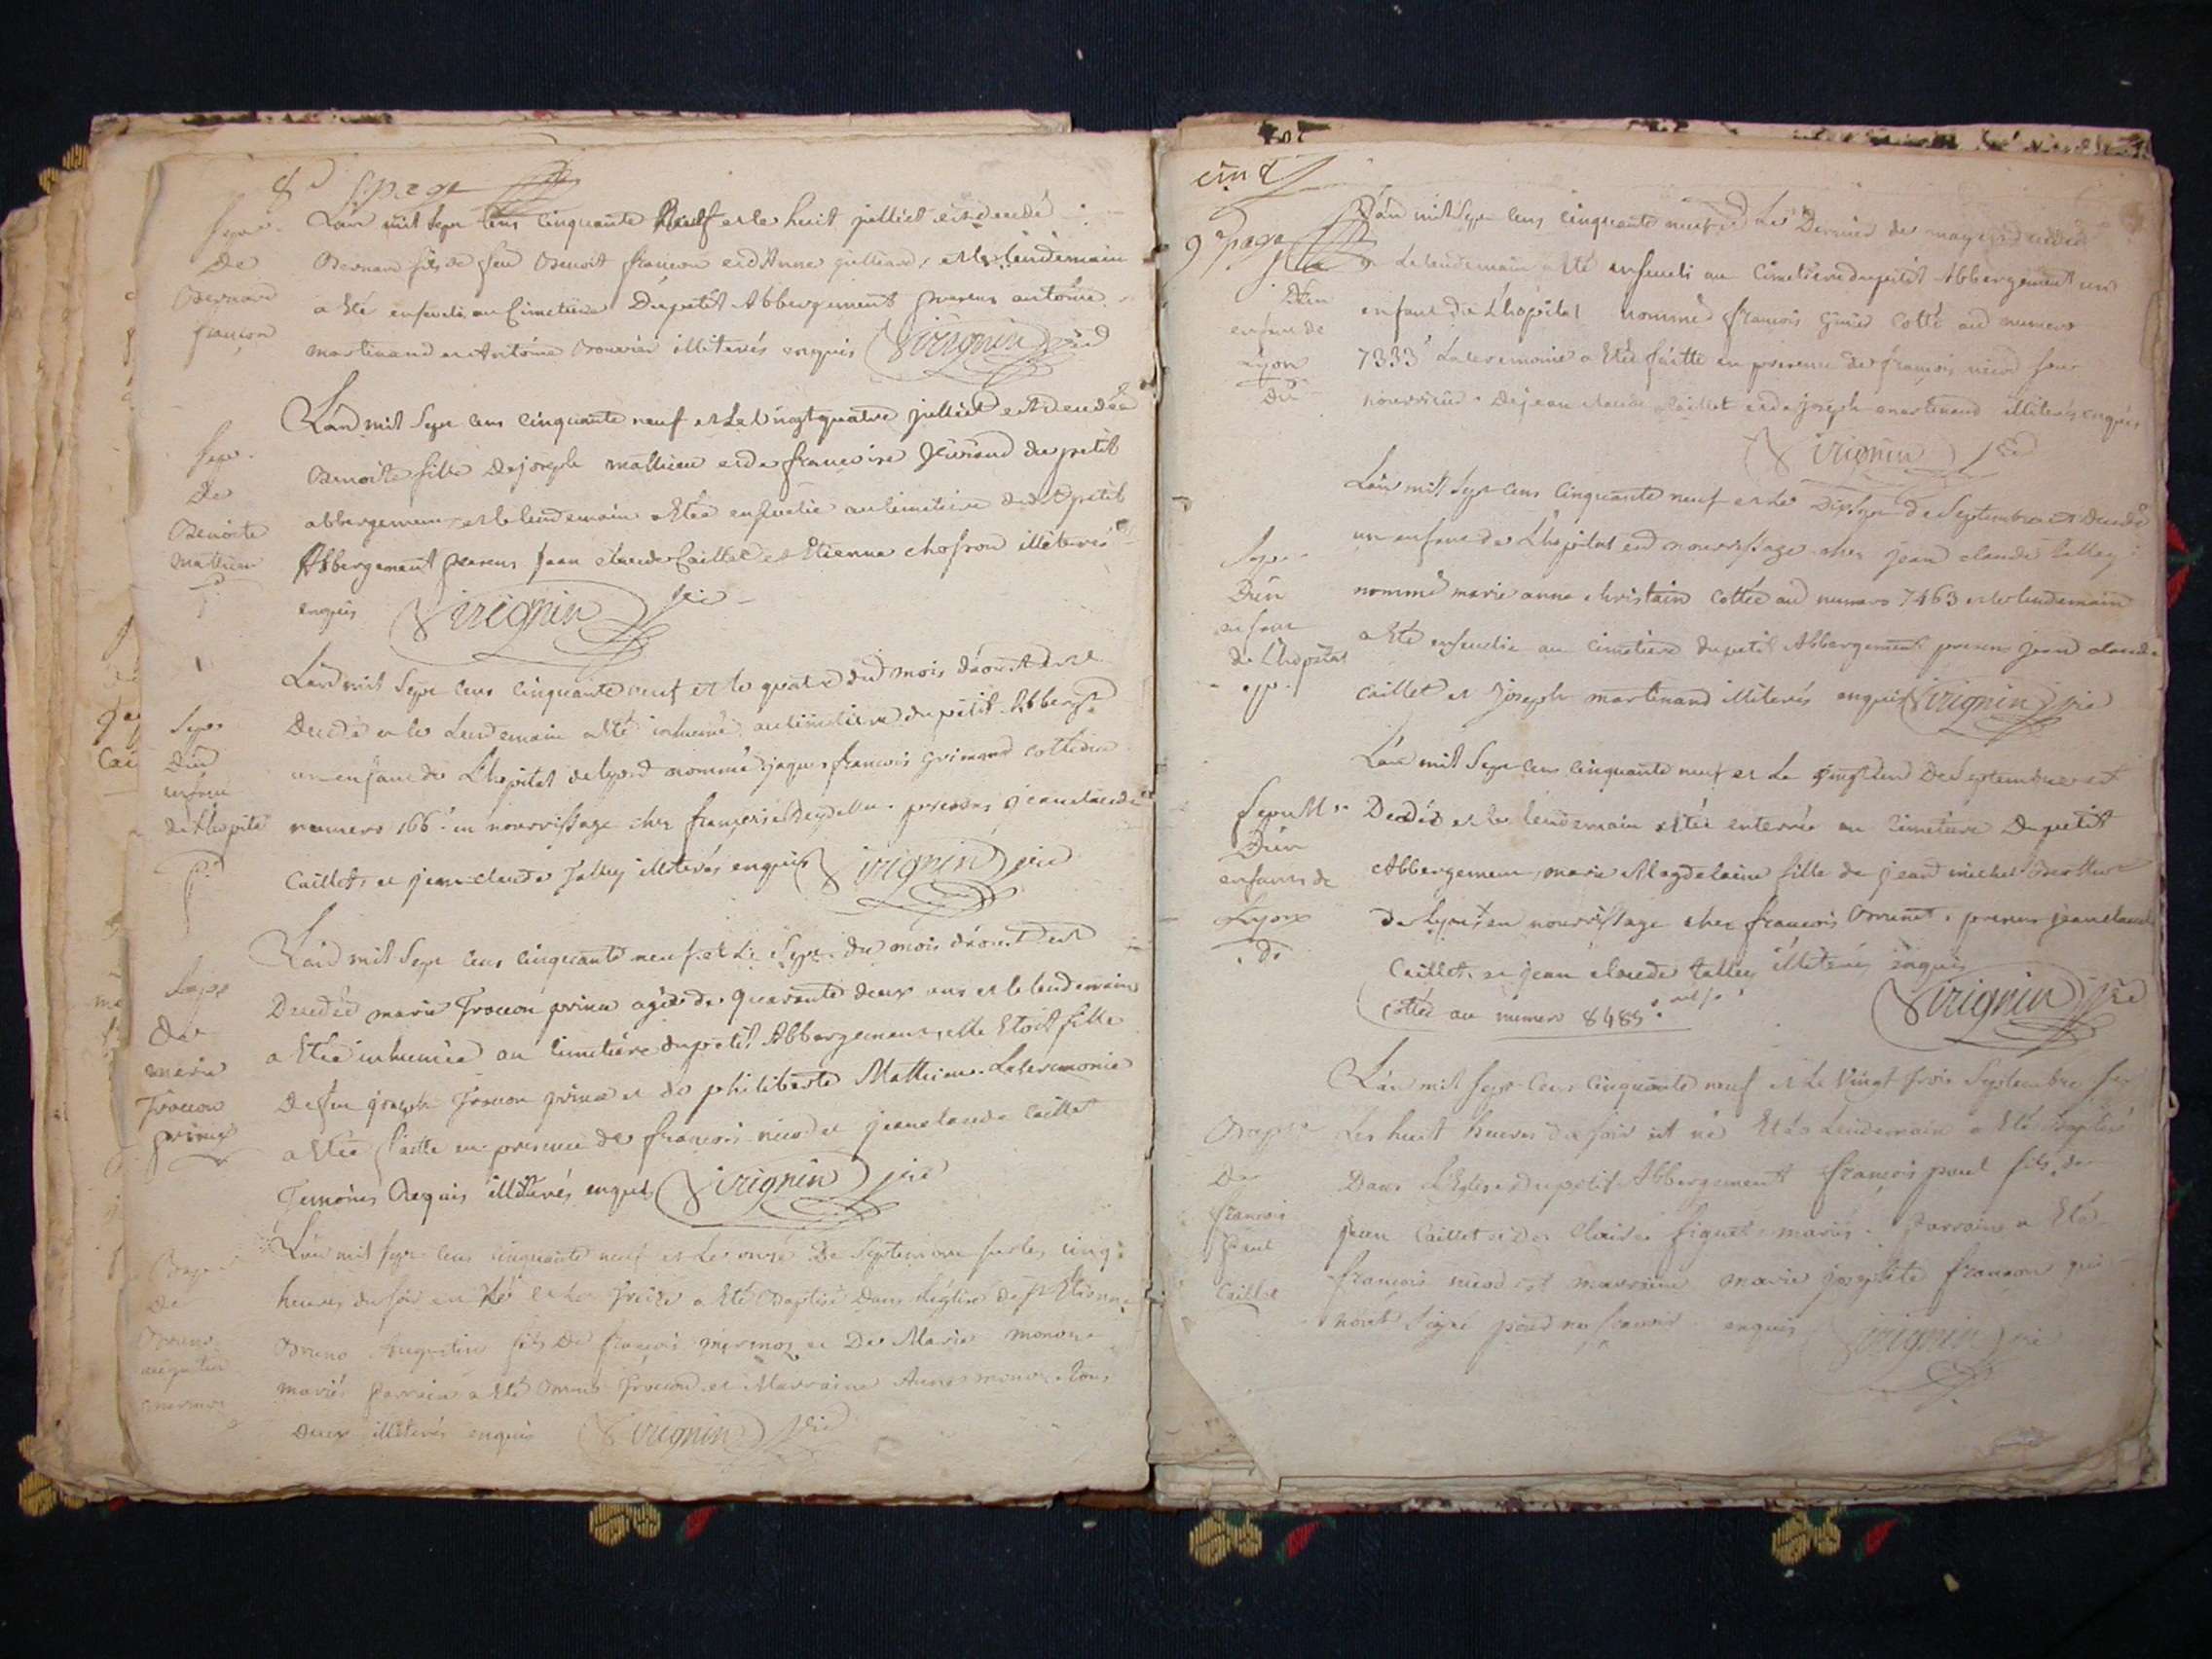 8e page
Sepre
De
Bernard
françon
L'an mil sept cens cinquante neuf et le huit julliet est decedé
Bernard fils de feu Benoit françon et d'Anne julliard, et le lendemain
a eté enseveli au cimetiere du petit Abbergement presens antoine
martinand et Antoine Bouvier illiterés enquis Virignin vic
Sepre
De
Benoite
Mathieu
L'an mil sept cens cinquante neuf et le vingt quatre julliet est decedée
Benoite fille de joseph mathieu et de francoise du petit
abbergement, et le lendemain a etée ensevelie au cimetiere dud petit
Abbergement presens jean claude Caillet et Etienne illiterés
enquis Virignin vic
Sepre
D'un
enfant
de l'hopital
L'an mil sept cens cinquante neuf et le quatre du mois d'aoust est
Decedé et le lendemain a eté inhumé au cimetiere du petit Abbergt
un enfant de L'hopital de lyon nommé jaques francois grimand cotté au
numero 166. en nourrissage chez presens jean claude
Caillet, et jean claude Talley illiterés enquis Virignin vic
Sepre
De
marie
Trocon
prince
L'an mil sept cens cinquante neuf et le sept du mois d'aoust est
Decedée marie Trocon prince agée de quarante deux ans et le lendemain
a etée inhumée au cimetiere du petit Abbergement, elle etoit fille
De feu joseph Trocon prince et de philiberte Mathieu. La ceremonie
a etée faitte en presence de francois nicod et jean claude Caillet
Temoins Requis illiterés enquis Virignin vic
Bapt
De
Bruno
augustin
mermoz
L'an mil sept cens cinquante neuf et le onze De Septembre sur les cinq
heures du soir est né et le treize a eté Baptisé Dans l'eglise de st Etienne
Bruno Augustin fils De francois mermoz et De Marie
mariés parrain a eté Bruno Trocon et Marraine Anne tous
deux illiterés enquis Virignin vic
cinq
9e page
D'un
enfant de
Lyon
L'an mil sept cens cinquante neuf et Le Dernier de may est decedé
et Le lendemain a eté enseveli au cimetiere du petit Abbergement un
enfant de L'hopital nommé francois cotté au numero
7333 La ceremonie a etée faitte en presence de francois nicod son
nourricier. De jean claude Caillet et de joseph martinand illiterés enquis
Virignin vic
Sepre
D'un
enfant
de L'hopital
L'an mil sept cens cinquante neuf et Le dix sept de Septembre est decedé
un enfant de L'hopital en nourrissage chez jean claude Talley
nommé marie anne christain cottée au numero 7463 et le lendemain
a eté ensevelie au cimetiere du petit Abbergement presens jean claude
Caillet et joseph martinand illiterés enquis Virignin vic
Sepult
D'un
enfans de
Lyon
L'an mil sept cens cinquante neuf et Le vingt un De Septembre est
Decedée et le lendemain a etée enterrée au cimetiere Du petit
Abbergement, marie Magdelaine fille de jean michel
de Lyon en nourrissage chez francois Brunet, presens jean claude
Caillet, et jean claude Talley illiterés enquis
cottée au numero 8485. Virignin vic
Bapt
De
francois
paul
Caillet
L'an mil sept cens cinquante neuf et Le vingt trois Septembre sur
Les huit heures du soir est né Et le Lendemain a eté Baptisé
Dans L'Eglise du petit Abbergement françois paul fils de
jean Caillet et de Claire figuet mariés. parrain a eté
francois nicod et marraine marie josephte françon qui
n'ont signé pour ne sçavoir enquis Virignin vic